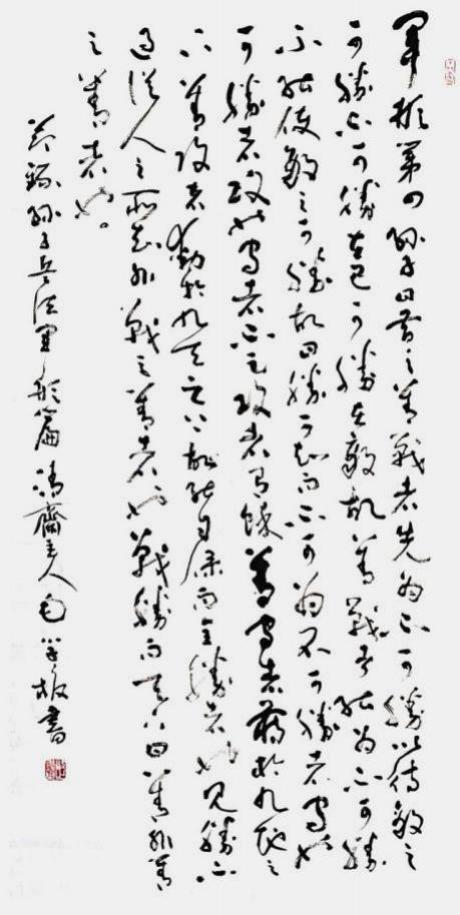 軍形第四孫子曰昔之善戰者先為不可勝以待敵之
可勝不可勝在己可勝在敵故善戰者能為不可勝
不能使敵之可勝故曰勝可知而不可為不可勝者守也
可勝者攻也守者不足攻者有餘善守者藏於九地之
下善攻者動於九天之上故能自保而全勝者也見勝不
過眾人之所知非戰之善者也戰勝而天下曰善非善
之善者也
節錄孫子兵法軍形篇 齋主人毛書